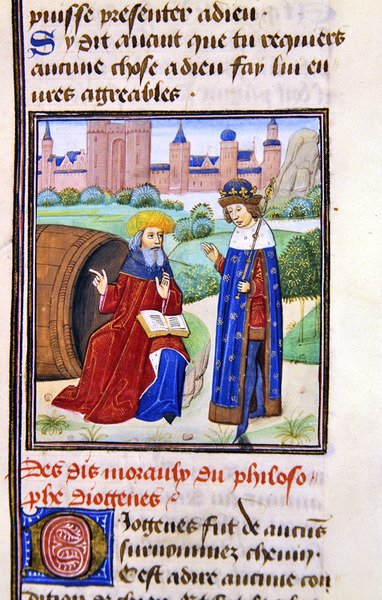 puisse presenter a dieu.
Sy dit auant que tu requiers
aucune chose a dieu fay lui eu
ures agreables.
Des dis moraulx du philoso
phe diogenes
Diogenes fut de aucuns
surnommez chenin.
Cest adire aucune con